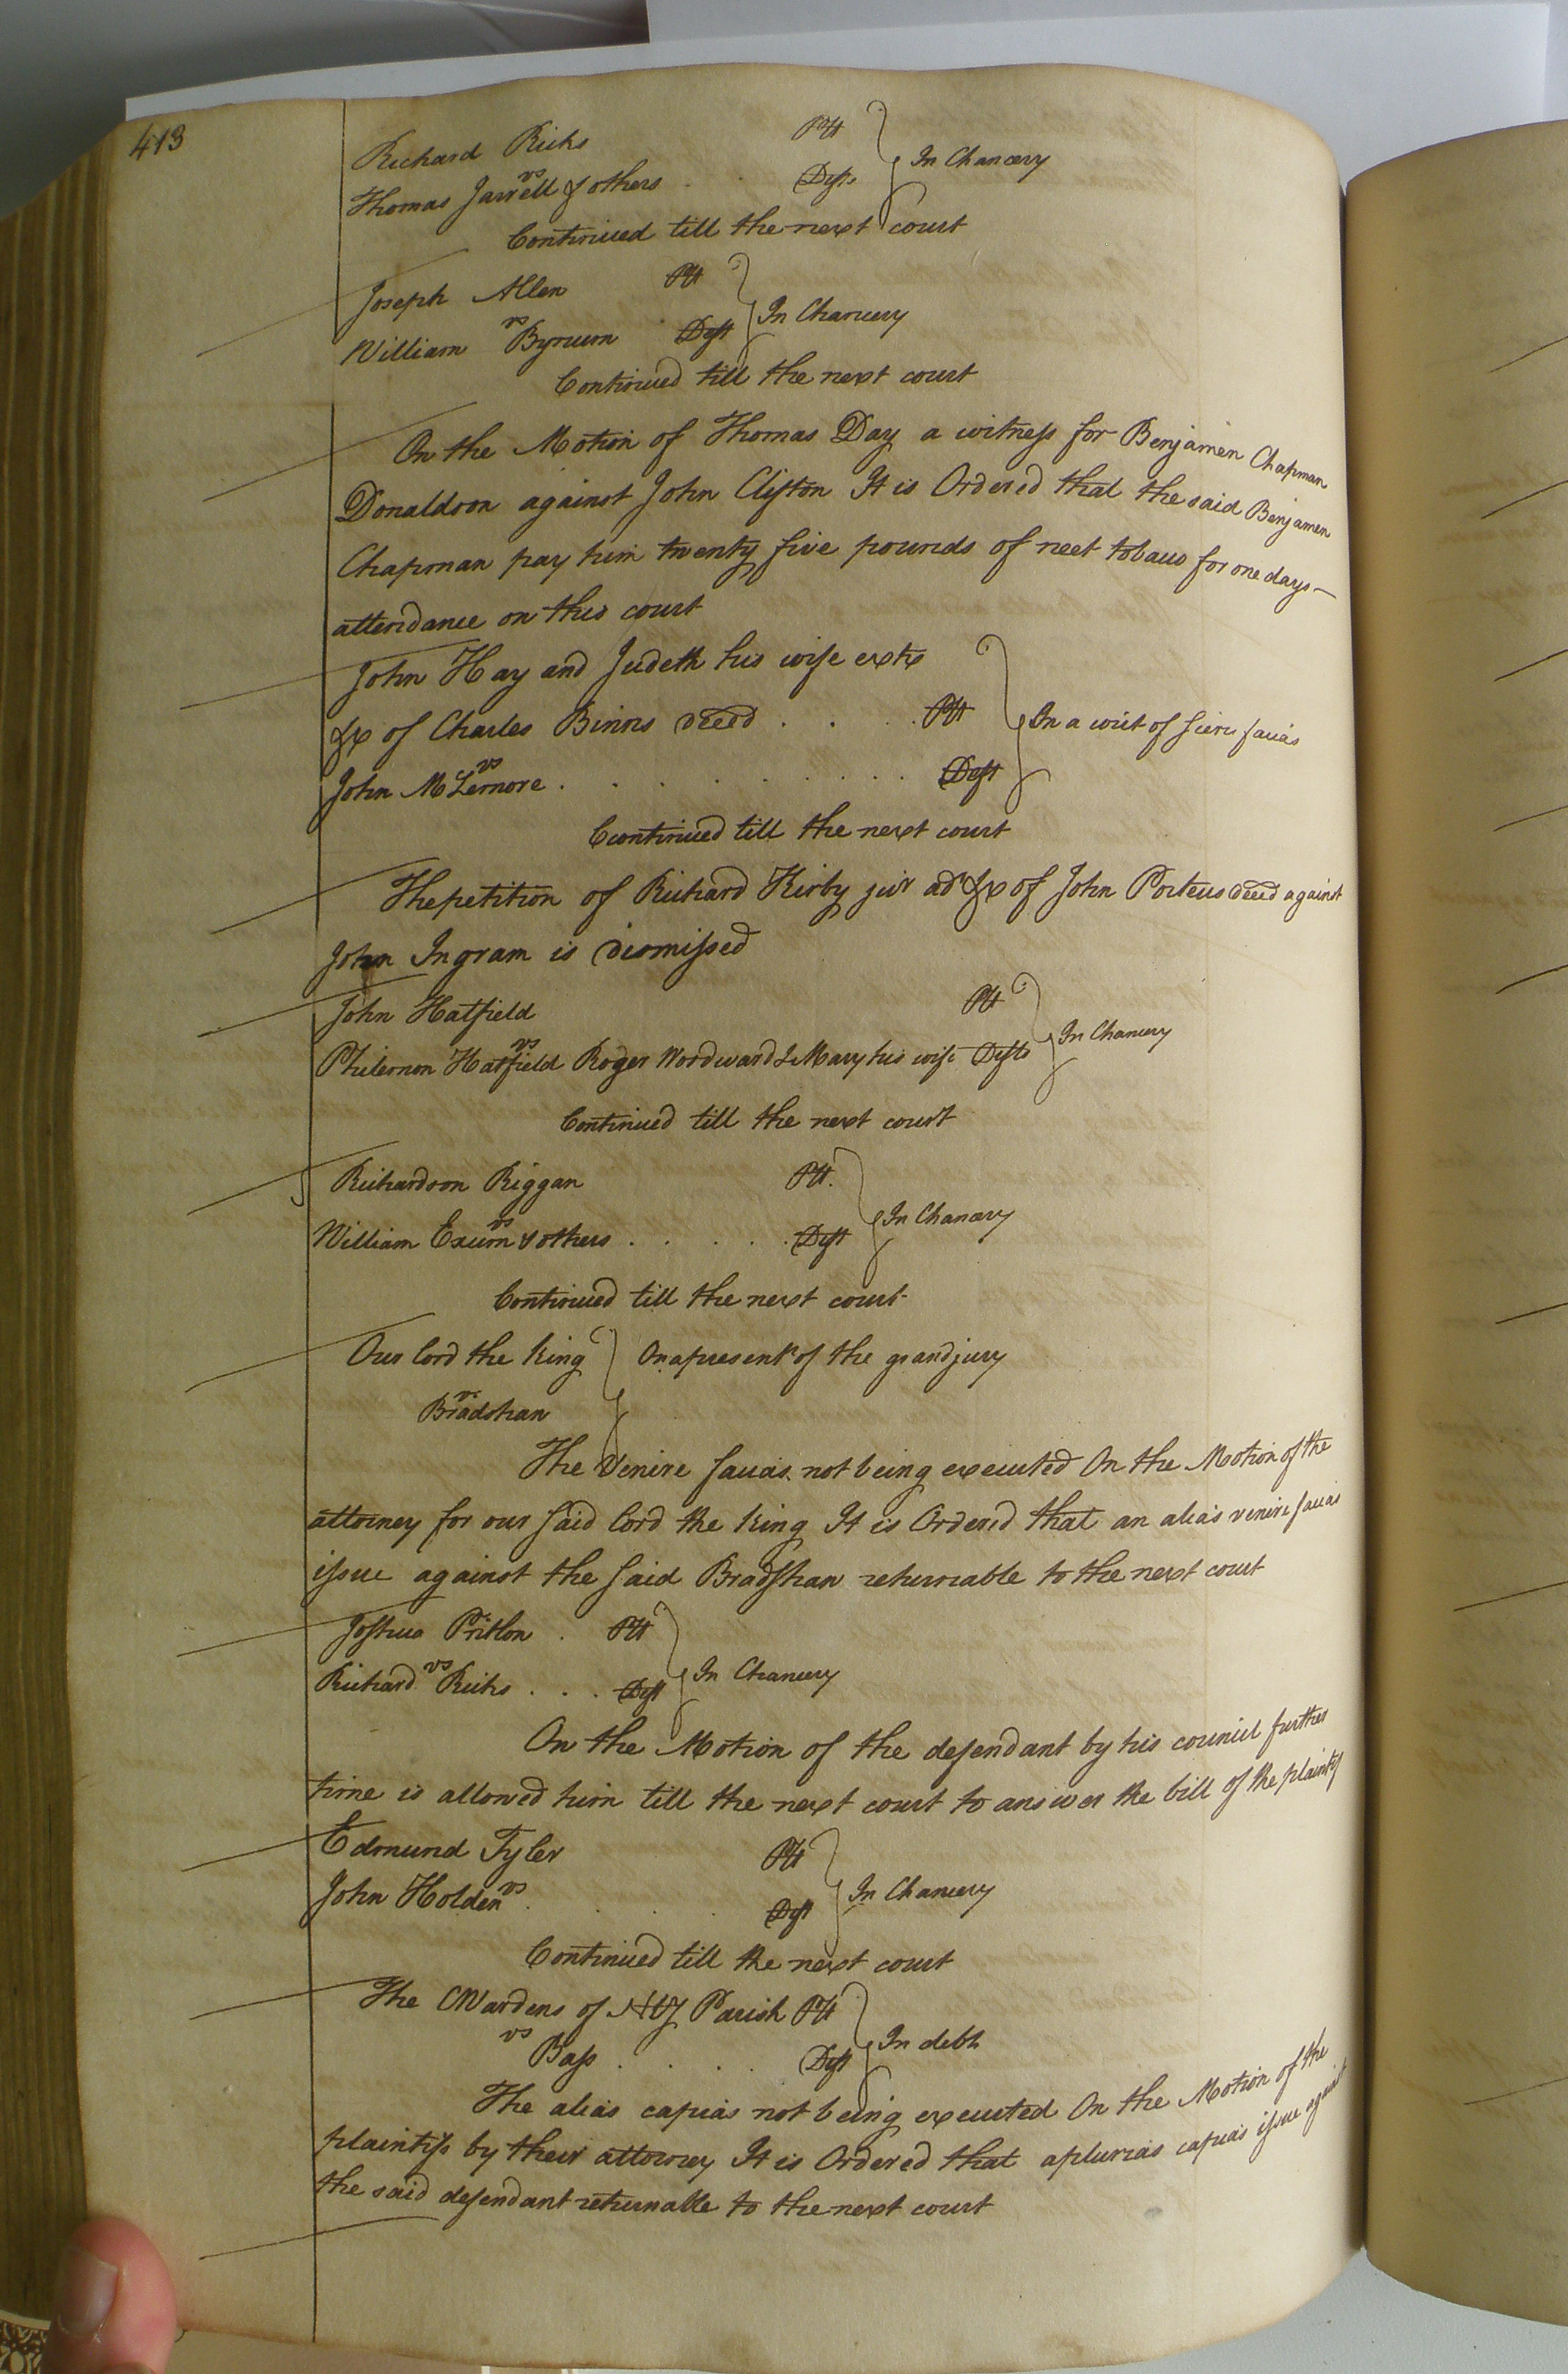 413
Richard Ricks Plt
vs In Chancery
Thomas Jarrell & others . . Defts
Continued till the next court
Joseph Allen Plt
vs In Chancery
William Byrum . Deft
Continued till the next court
On the Motion of Thomas Day a witness for Benjamin Chapman
Donaldson against John Clifton It is Ordered that the said Benjamin
Chapman pay him twenty five pounds of neet tobacco for one days
attendance on this court
John Hay and Judeth his wife extx
&c of Charles Binns deced . . . Plt
vs In a writ of scire facias
John McLemore . . . . . . . . Deft
Ccontinued till the next court
The petition of Richard Kirby jur adr &c of John Porteus deced against
John Ingram is dismissed
John Hatfield Plt
vs In Chancery
Philemon Hatfield Roger Woodward & Mary his wife Defts
Continued till the next court
Richardson Riggan Plt.
vs In Chancery
William Exum & others . . . . . Deft
Continued till the next court
Our lord the king On a presentt of the grand jury
vs
Bradshaw
The Venire facias not being executed On the Motion of the
attorney for our said lord the king It is Ordered that an alias venire facias
issue against the said Bradshaw returnable to the next court
Joshua . Plt
vs In Chancery
Richard Ricks . . . Deft
On the Motion of the defendant by his council further
time is allowed him till the next court to answer the bill of the plaintif
Edmund Tyler Plt
vs In Chancery
John Holden . . . . Deft
Continued till the next court
The CWardens of Parish Plt
vs In debt
Bass . . . . Deft
The alias capias not being executed On the Motion of the
plaintifs by their attorney It is Ordered that a plurias capias issue against
the said defendant returnable to the next court